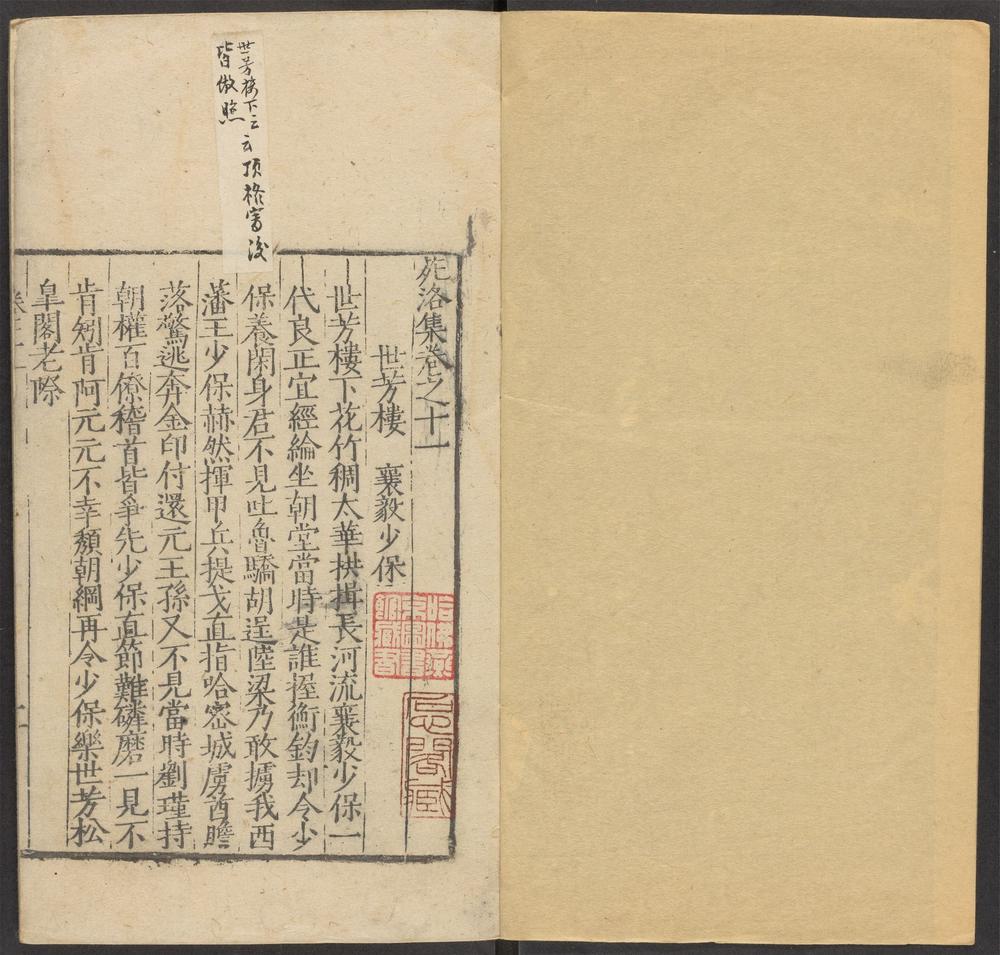 世芳楼下云云頂格寫後
皆倣照
苑洛集卷之十一
世芳樓 襄毅少保
世芳樓下花竹稠太華拱揖長河流襄毅少保一
代良正宜經綸坐朝堂當時是誰握衡鈞却令少
保養閑身君不見吐魯驕胡逞陸梁乃敢擄我西
藩王少保赫然揮甲兵提戈直指哈密城虜酋膽
落驚逃奔金印付還元王孫又不見當時劉瑾持
朝權百僚稽首皆爭先少保直節難磷磨一見不
肯矧肯阿元元不幸頽朝綱再令少保樂世芳松
皇閣老際
哈佛燕
京圖書
館藏書